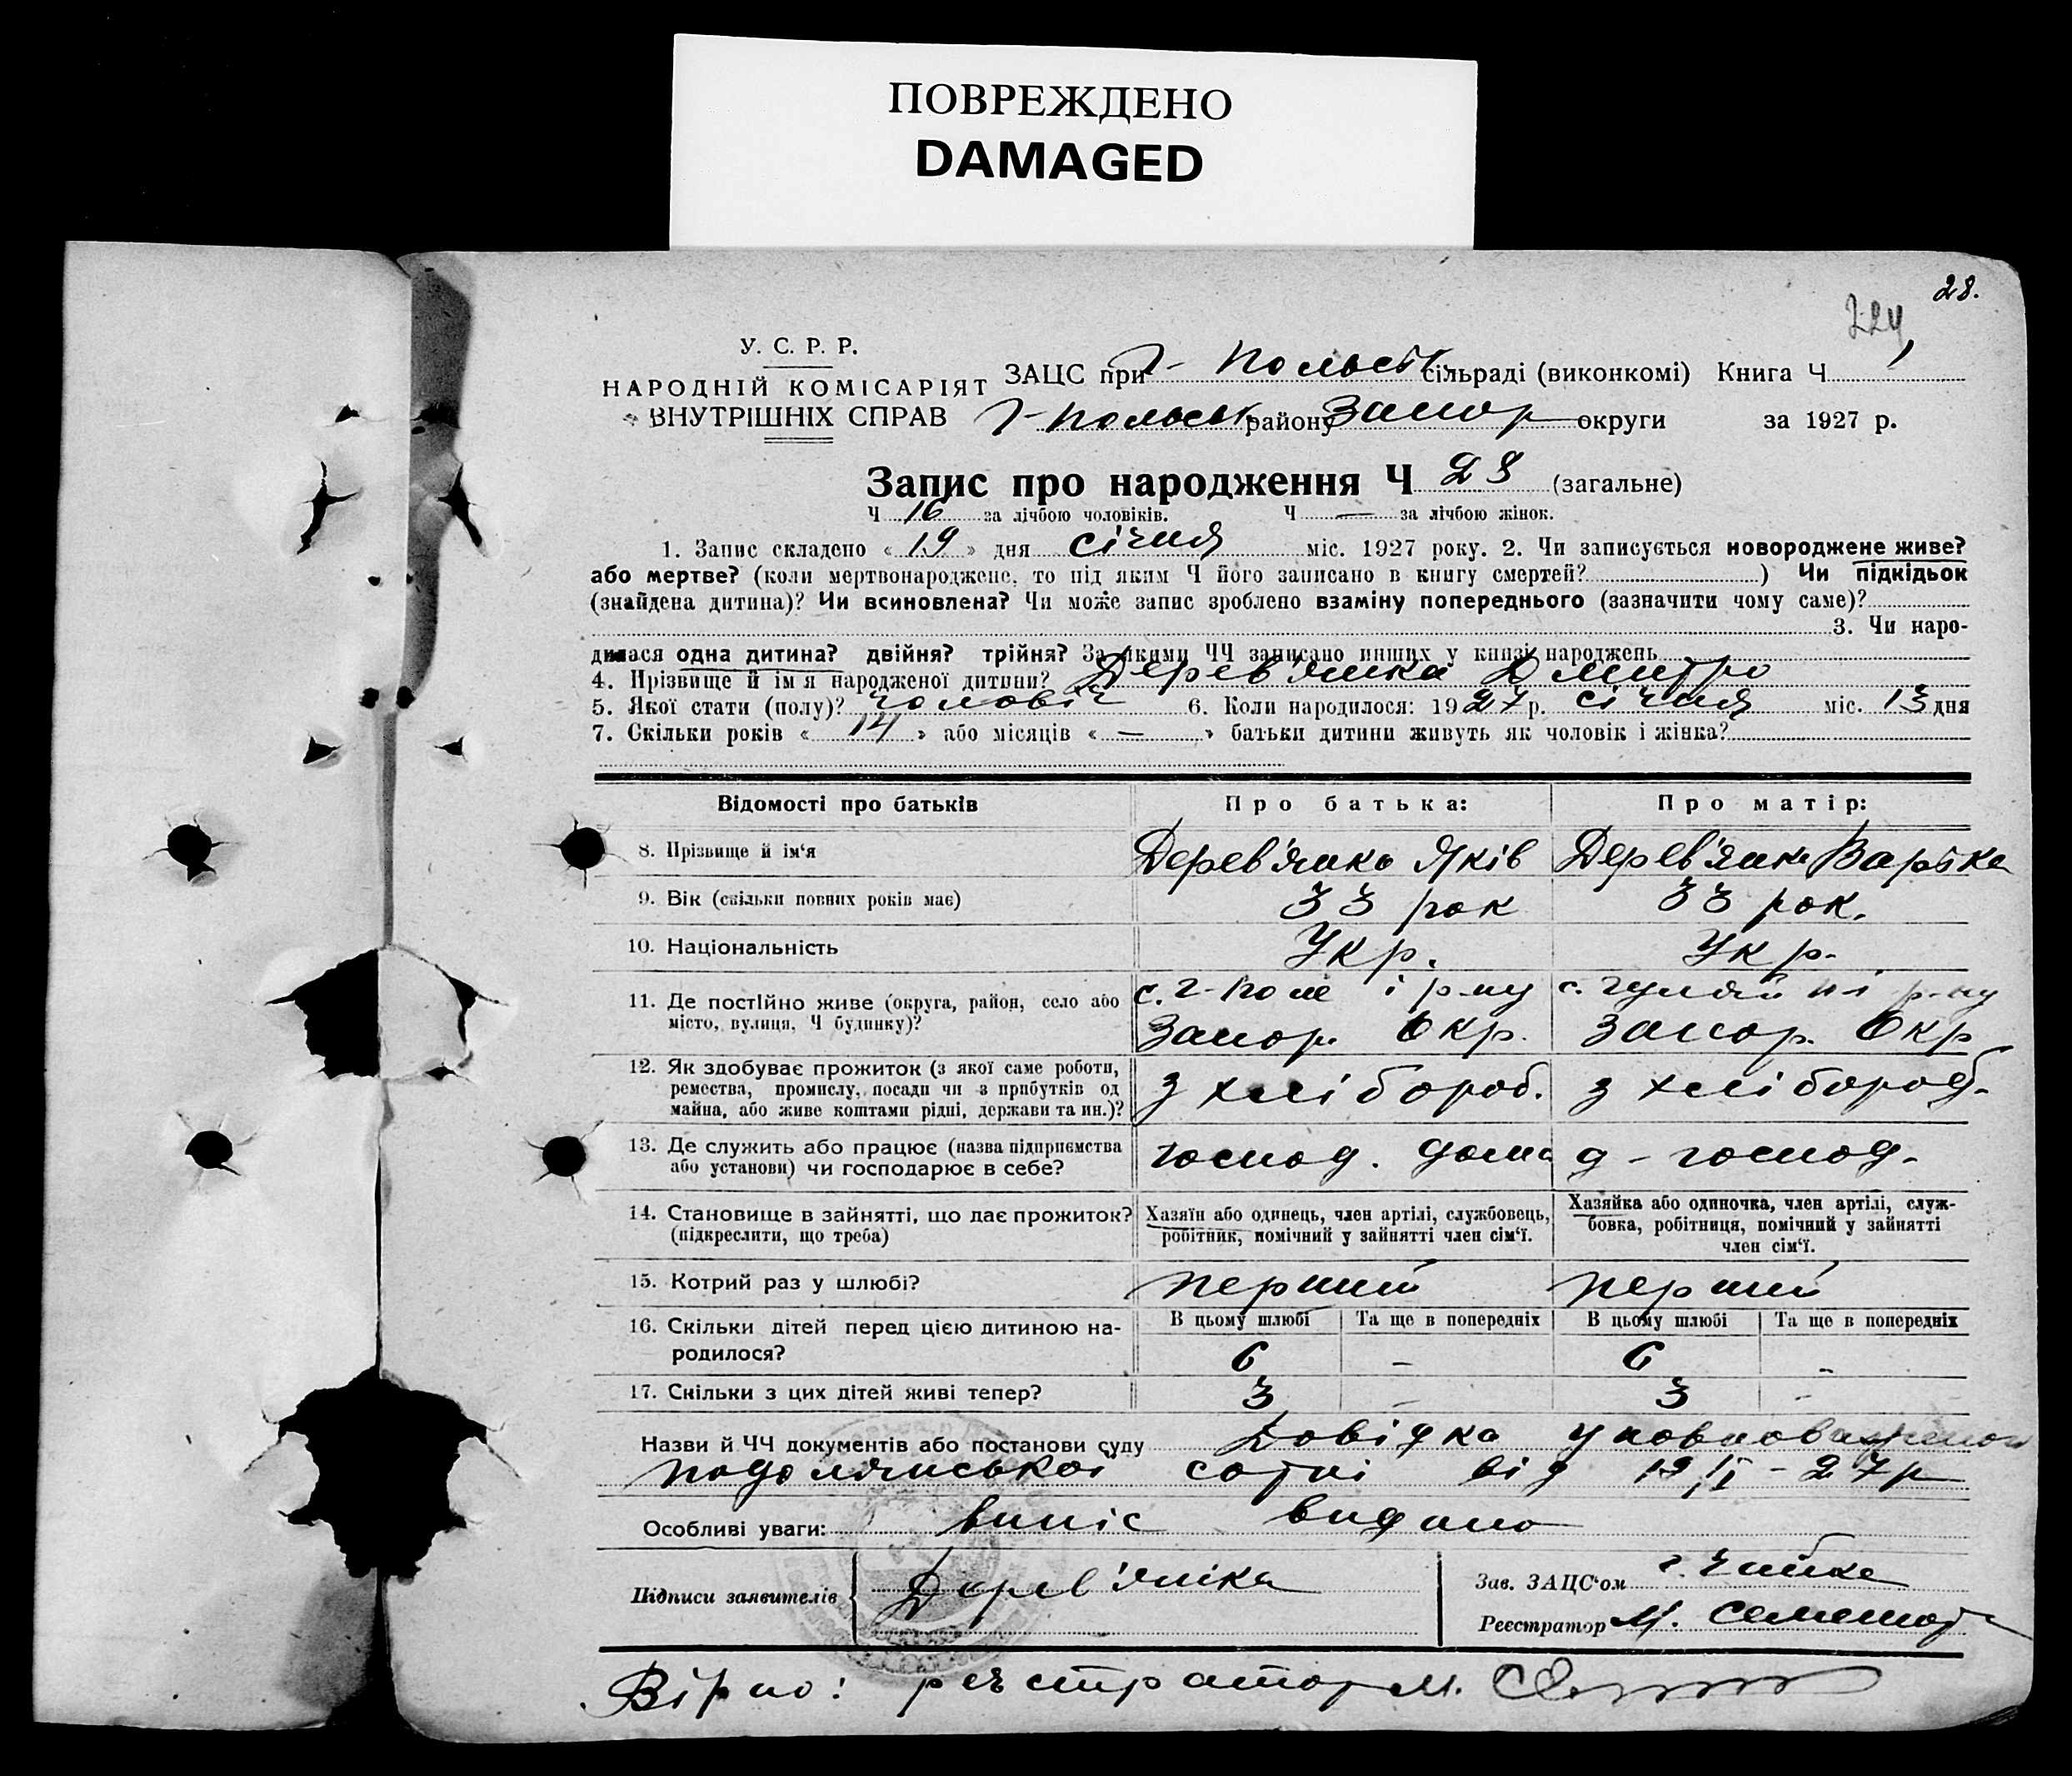 ПОВРЕЖДЕНО
DAMAGED
28.
224
У. С. Р. Р.
НАРОДНІЙ КОМІСАРІЯТ
ВНУТРІШНІХ СПРАВ
ЗАЦС при Г-Польск. сільраді (виконкомі) Книга Ч 1
Г-Польськ району Запор округи за 1927 р.
Запис про народження Ч 28 (загальне)
Ч 16 за лічбою чоловіків. Ч — за лічбою жінок.
1. Запис складено « 19 » дня січня міс. 1927 року. 2. Чи записується новороджене живе?
або мертве? (коли мертвонароджене, то під яким Ч його записано в книгу смертей? ) Чи підкідьок
(знайдена дитина)? Чи всиновлена? Чи може запис зроблено взаміну попереднього (зазначити чому саме)?
3. Чи наро-
дилася одна дитина? двійня? трійня? За якими ЧЧ записано инших у книзі народжень
4. Прізвище й ім'я народженої дитини? Дерев'янка Дмитро
5. Якої стати (полу)? чоловіч 6. Коли народилося: 1927 р. січня міс. 13 дня
7. Скільки років « 14 » або місяців « — » батьки дитини живуть як чоловік і жінка?
Відомості про батьків Про батька: Про матір:
8. Прізвище й ім'я Дерев'янко Яків Дерев'янко Варька
9. Вік (скільки повних років має) 33 рок 33 рок.
10. Національність Укр. Укр.
11. Де постійно живе (округа, район, село або місто, вулиця, Ч будинку)? с. Г-Поле і р-ну Запор. Окр. с. Гуляй п і р-ну Запор. Окр
12. Як здобуває прожиток (з якої саме роботи, ремества, промислу, посади чи з прибутків од майна, або живе коштами рідні, держави та ин.)? з хлібороб. з хлібороб.
13. Де служить або працює (назва підприємства або установи) чи господарює в себе? господ. дома д - господ.
14. Становище в зайнятті, що дає прожиток? (підкреслити, що треба) Хазяїн або одинець, член артілі, службовець, робітник, помічний у зайнятті член сім'ї. Хазяйка або одиночка, член артілі, служ-бовка, робітниця, помічний у зайнятті член сім'ї.
15. Котрий раз у шлюбі? перший перший
16. Скільки дітей перед цією дитиною на-родилося? В цьому шлюбі 6 Та ще в попередніх – В цьому шлюбі 6 Та ще в попередніх –
17. Скільки з цих дітей живі тепер? 3 – 3 –
Назви й ЧЧ документів або постанови суду Довідка уповноваженого
подолянської сотні від 19/I - 27 р
Особливі уваги: випіс видано
Підписи заявителів Дерев'янка Зав. ЗАЦС'ом
Реєстратор М. Семенюта
Вірно: реєстратор М.